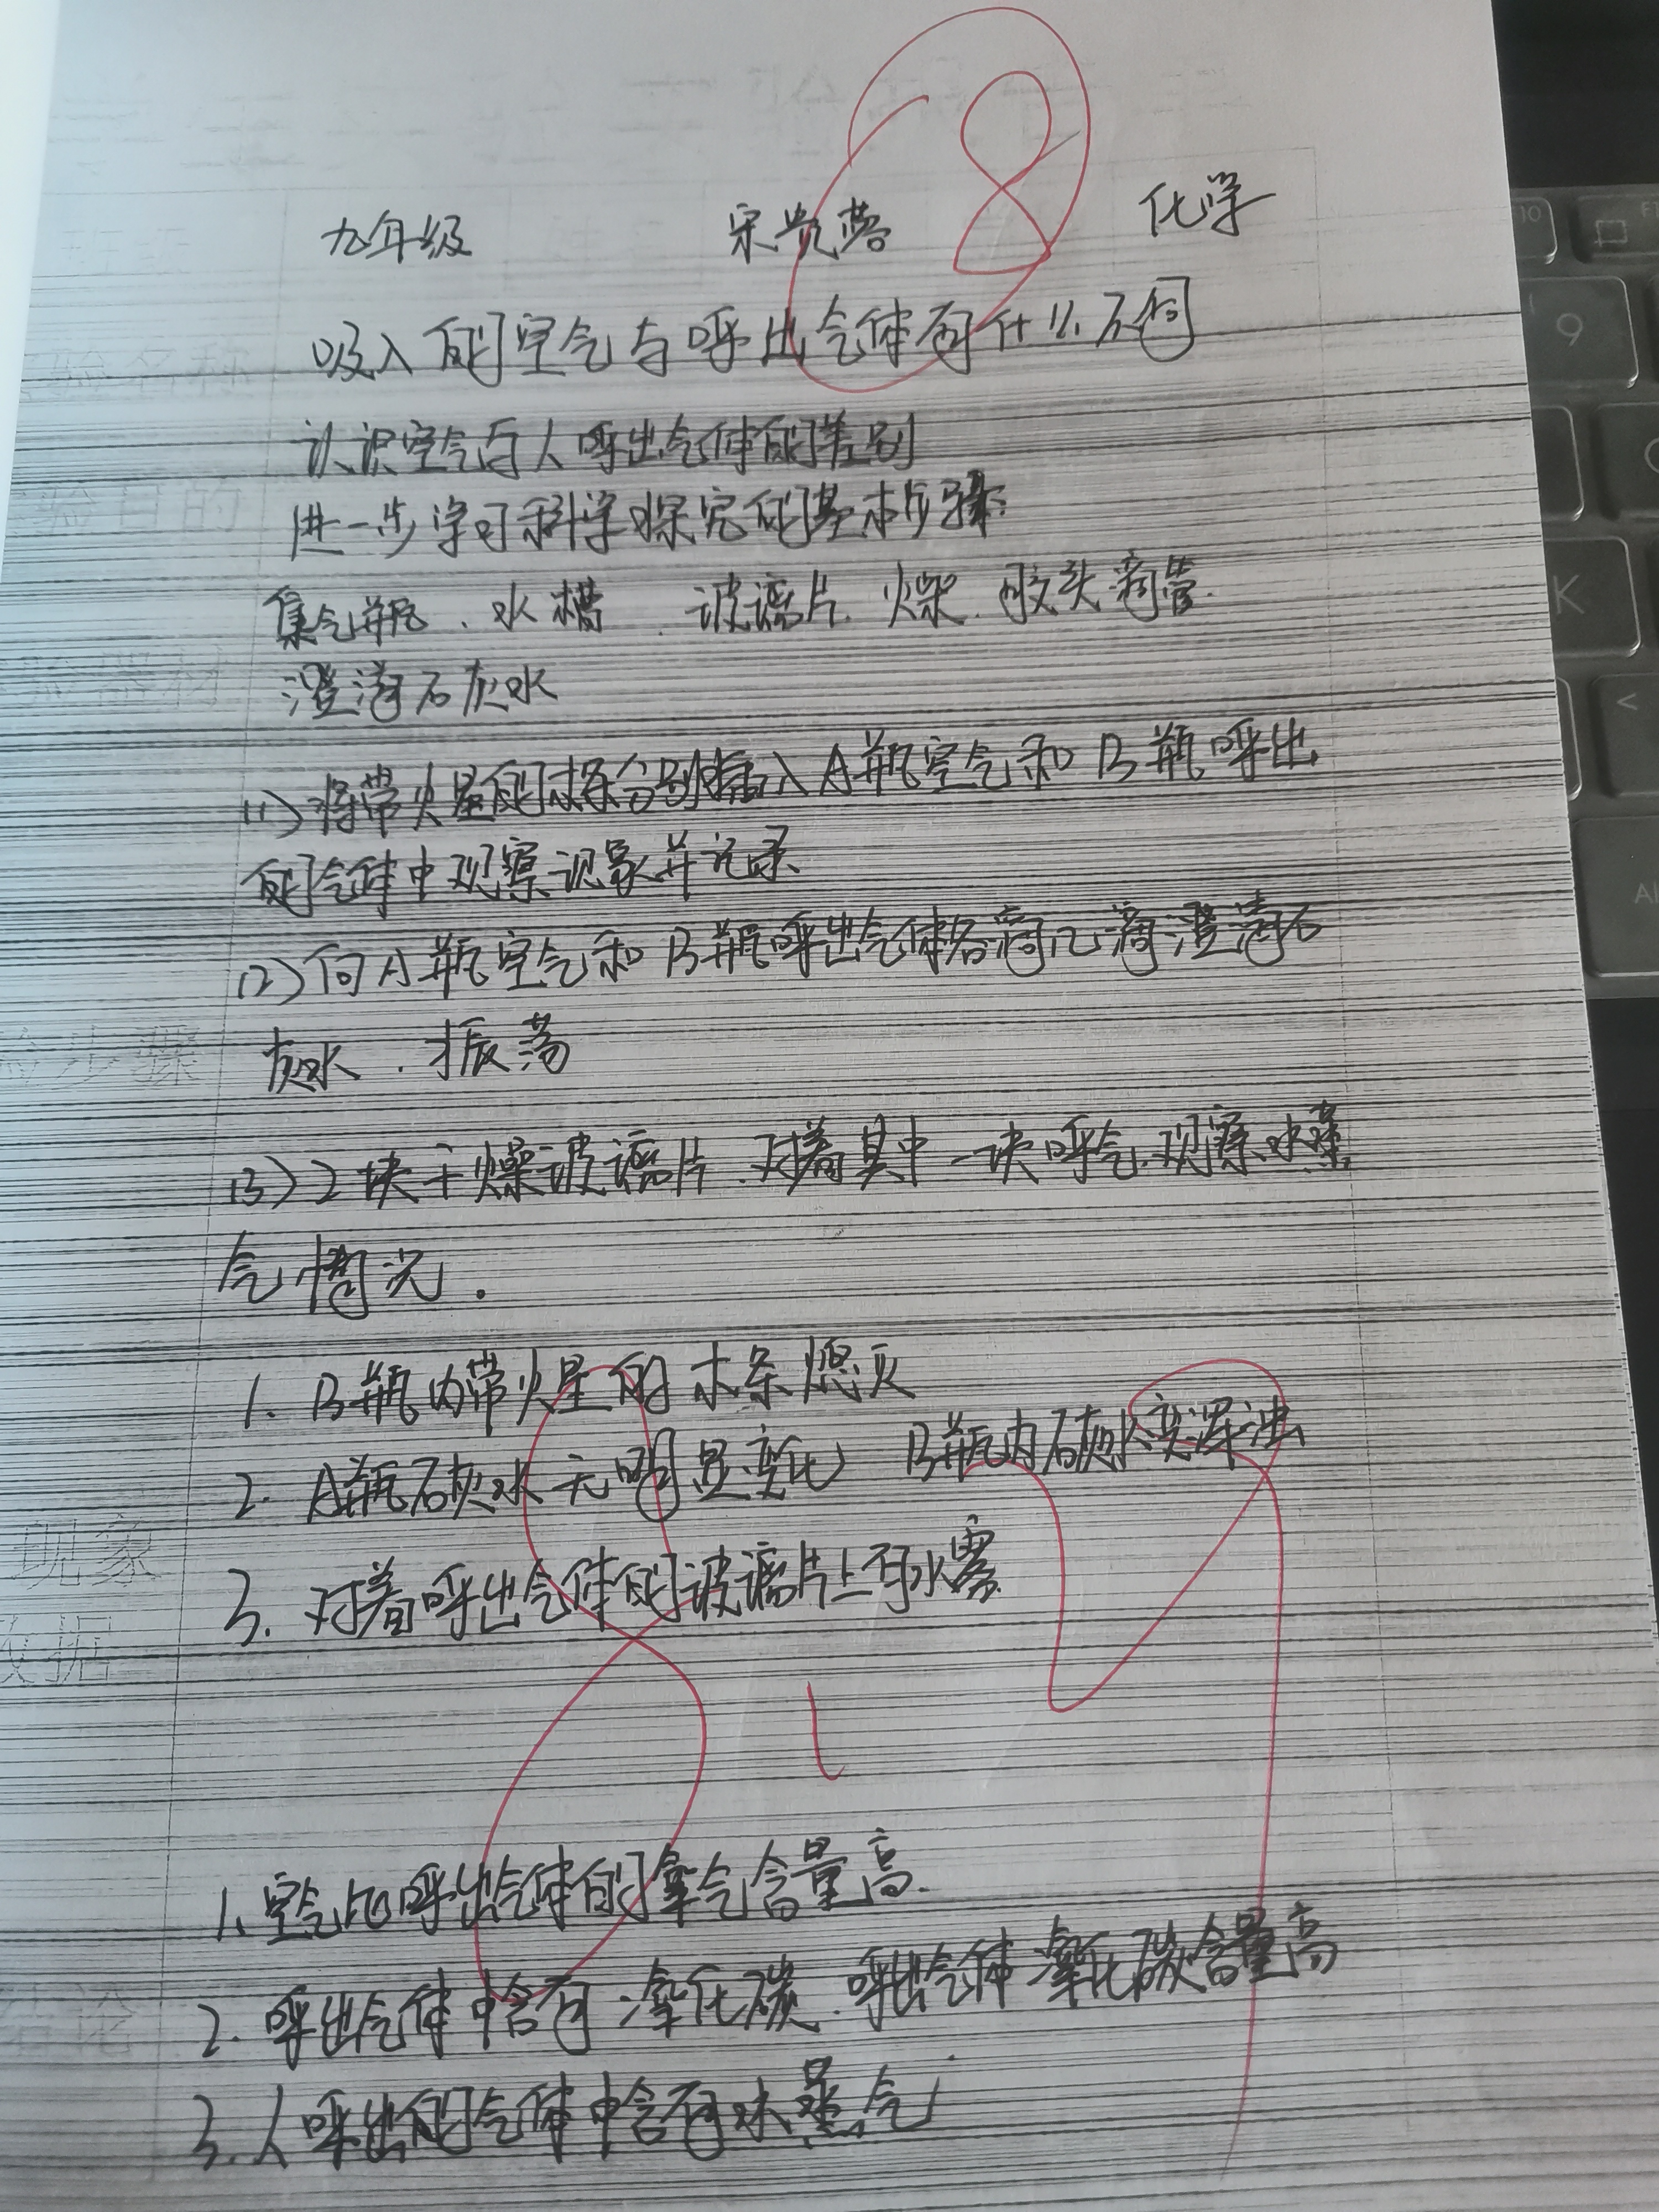 九年级 宋贵蓉 化学
吸入的空气与呼出气体有什么不同
验名称
认识空气与人呼出气体的差别
验目的
进一步学习科学探究的基本步骤
集气瓶、水槽、玻璃片、胶头滴管、
验器材
澄清石灰水
(1)将带火星的木条分别插入A瓶空气和B瓶呼出
的气体中观察现象并记录
(2)向A瓶空气和B瓶呼出气体各滴几滴澄清石
灰水、振荡
步骤
(3)2块干燥玻璃片、对着其中一块呼气、观察水蒸
气情况.
1. B瓶内带火星的木条熄灭
2. A瓶石灰水无明显变化 B瓶内石灰水变浑浊
现象
3. 对着呼出气体的玻璃片上有水雾
数据
1、空气比呼出气体的氧气含量高.
2. 呼出气体中含有二氧化碳.呼出气体二氧化碳含量高
结论
3.人呼出的气体中含有水蒸气
8
8